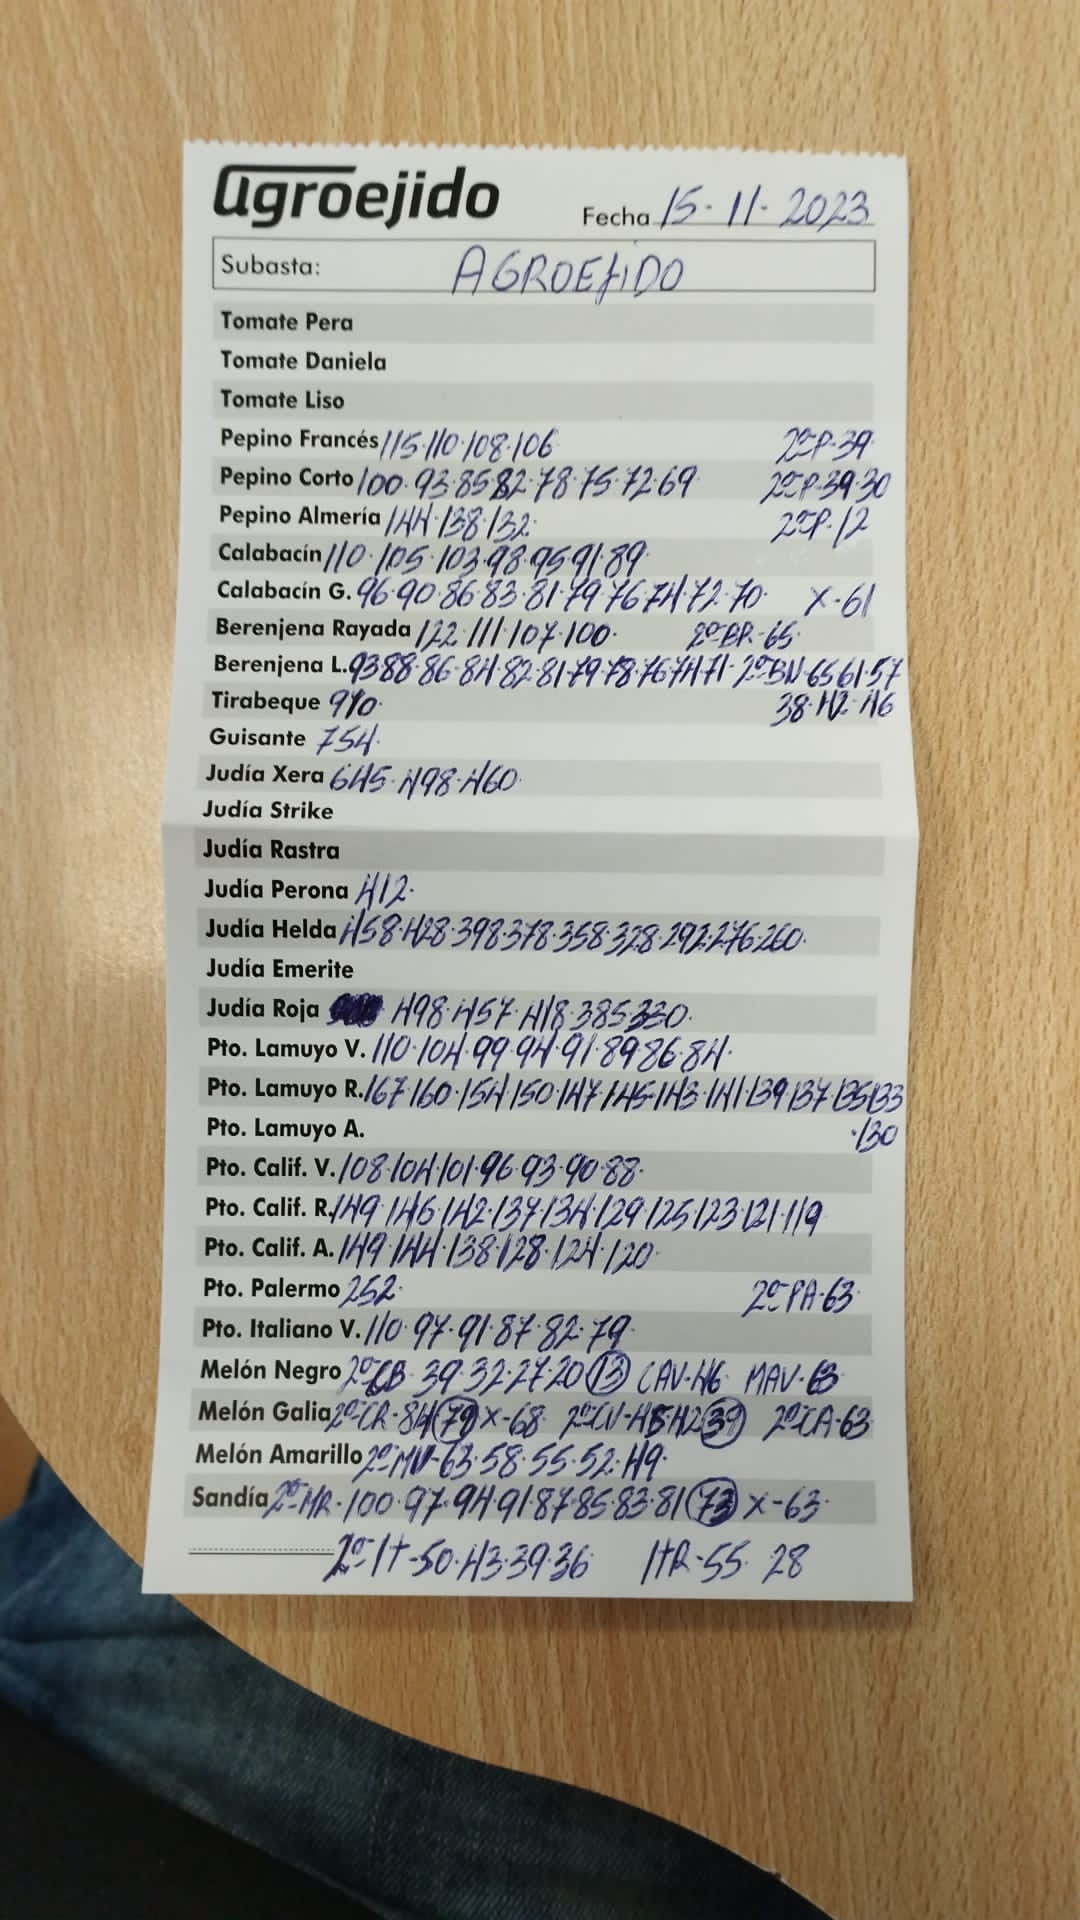 agroejido
Fecha 15-11-2023
Subasta: AGROEJIDO
Tomate Pera
Tomate Daniela
Tomate Liso
Pepino Francés 115·110·108·106 2ªP-39
Pepino Corto 100·93·85·82·78·75·72·69 2ªP-39·30
Pepino Almería 144·138·132· 2ªP-12
Calabacín 110·105·103·98·95·91·89
Calabacín G. 96·90·86·83·81·79·76·74·72·70· X-61
Berenjena Rayada 122·111·107·100· 2ªBR-65·
Berenjena L. 93·88·86·84·82·81·79·78·76·74·71· 2ªBN-65·61·57
Tirabeque 910· 38·42·46
Guisante 754·
Judía Xera 645·498·460·
Judía Strike
Judía Rastra
Judía Perona 412·
Judía Helda 458·428·398·378·358·328·292·276·260·
Judía Emerite
Judía Roja 498·457·418·385·330·
Pto. Lamuyo V. 110·104·99·94·91·89·86·84·
Pto. Lamuyo R. 167·160·154·150·147·145·143·141·139·137·135·133
Pto. Lamuyo A. ·130
Pto. Calif. V. 108·104·101·96·93·90·88·
Pto. Calif. R. 149·146·142·137·134·129·125·123·121·119
Pto. Calif. A. 149·144·138·128·124·120·
Pto. Palermo 252· 2ªPA-63·
Pto. Italiano V. 110·97·91·87·82·79·
Melón Negro 2ªCB·39·32·27·20 13 CAV-46 MAV-63
Melón Galia 2ªCR-84 79 X-68 2ªCV-45·42 39 2ªCA-63
Melón Amarillo 2ªMV-63·58·55·52·49·
Sandía 2ªMR·100·97·94·91·87·85·83·81 73 X-63·
2ªIT-50·43·39·36 ITR-55 28